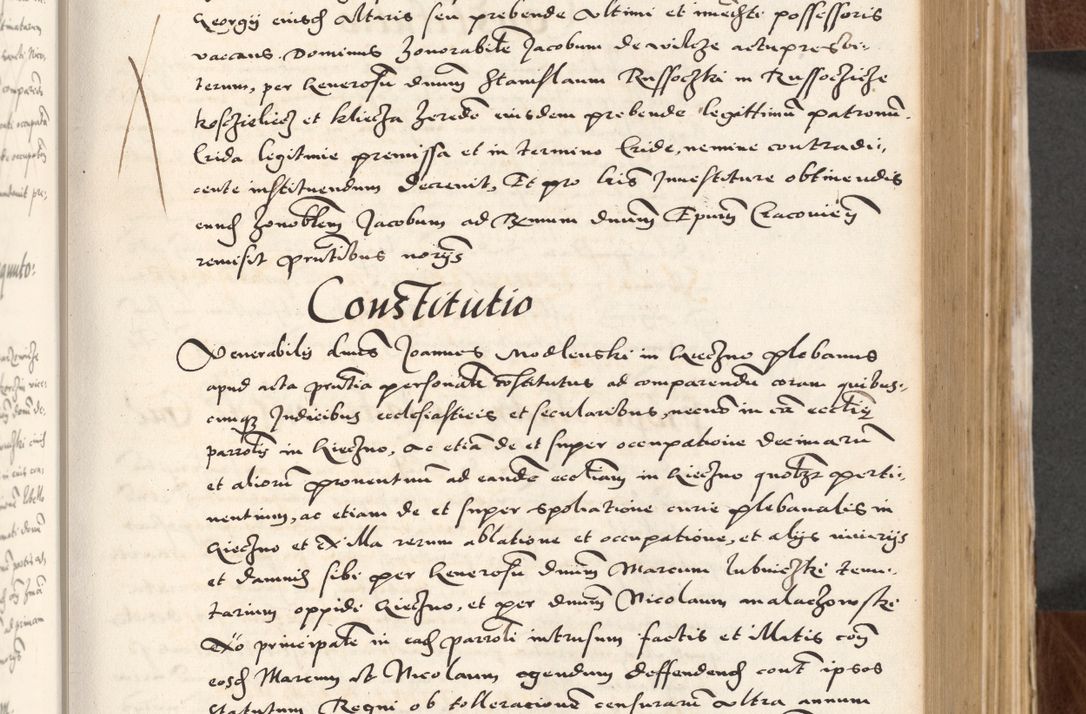 Georgii eiusd altaris seu prebende ultimi et immediati possessoris
vacans. Dominus honorabilē Jacobum de Wilcze actu presbi-
terum, per Generosū dnum Stanislaum Russoczki in Russocziche
Kosczielicz et Kliecza heredē eiusdem prebende legittimū patronū.
Crida legitime premissa et in termino Cride, nemine contradi-
cente instituendum decrevit, Et pro literis Investiture obtinendis
eund honobilem Jacobum ad Rmum dnum Epum Cracovien
remisit pntibus noriis
Constitutio
Venerabilis dnus Joannes Modlenski in Kieczno plebanus
apud acta pntia personalē constitutus ad comparendū coram quibus-
cunq Judicibus ecclesiasticis et secularibus, necnō in cā ecctie
parrolis in Kieczno, ac etiā de et super occupatione decimarum
et aliorū proventuum ad eandē eccliam in Kieczno quotlz perti-
nentium, ac etiam de et super spoliatione curie plebanalis in
Kieczno et ex illa rerum ablatione et occupatione, et alijs iniurijs
et damnis sibi per Generosū dnum Marcum Lubniczki tenu-
tarium oppidi Kieczno, et per dnum Nicolaum Malaczowski
principalē in ead parroli intrusum factis et illatis con
eosd Marcum et Nicolaum agendum deffendend cont ipsos
statutum Regni ob tollerationē censurarū ultra annum